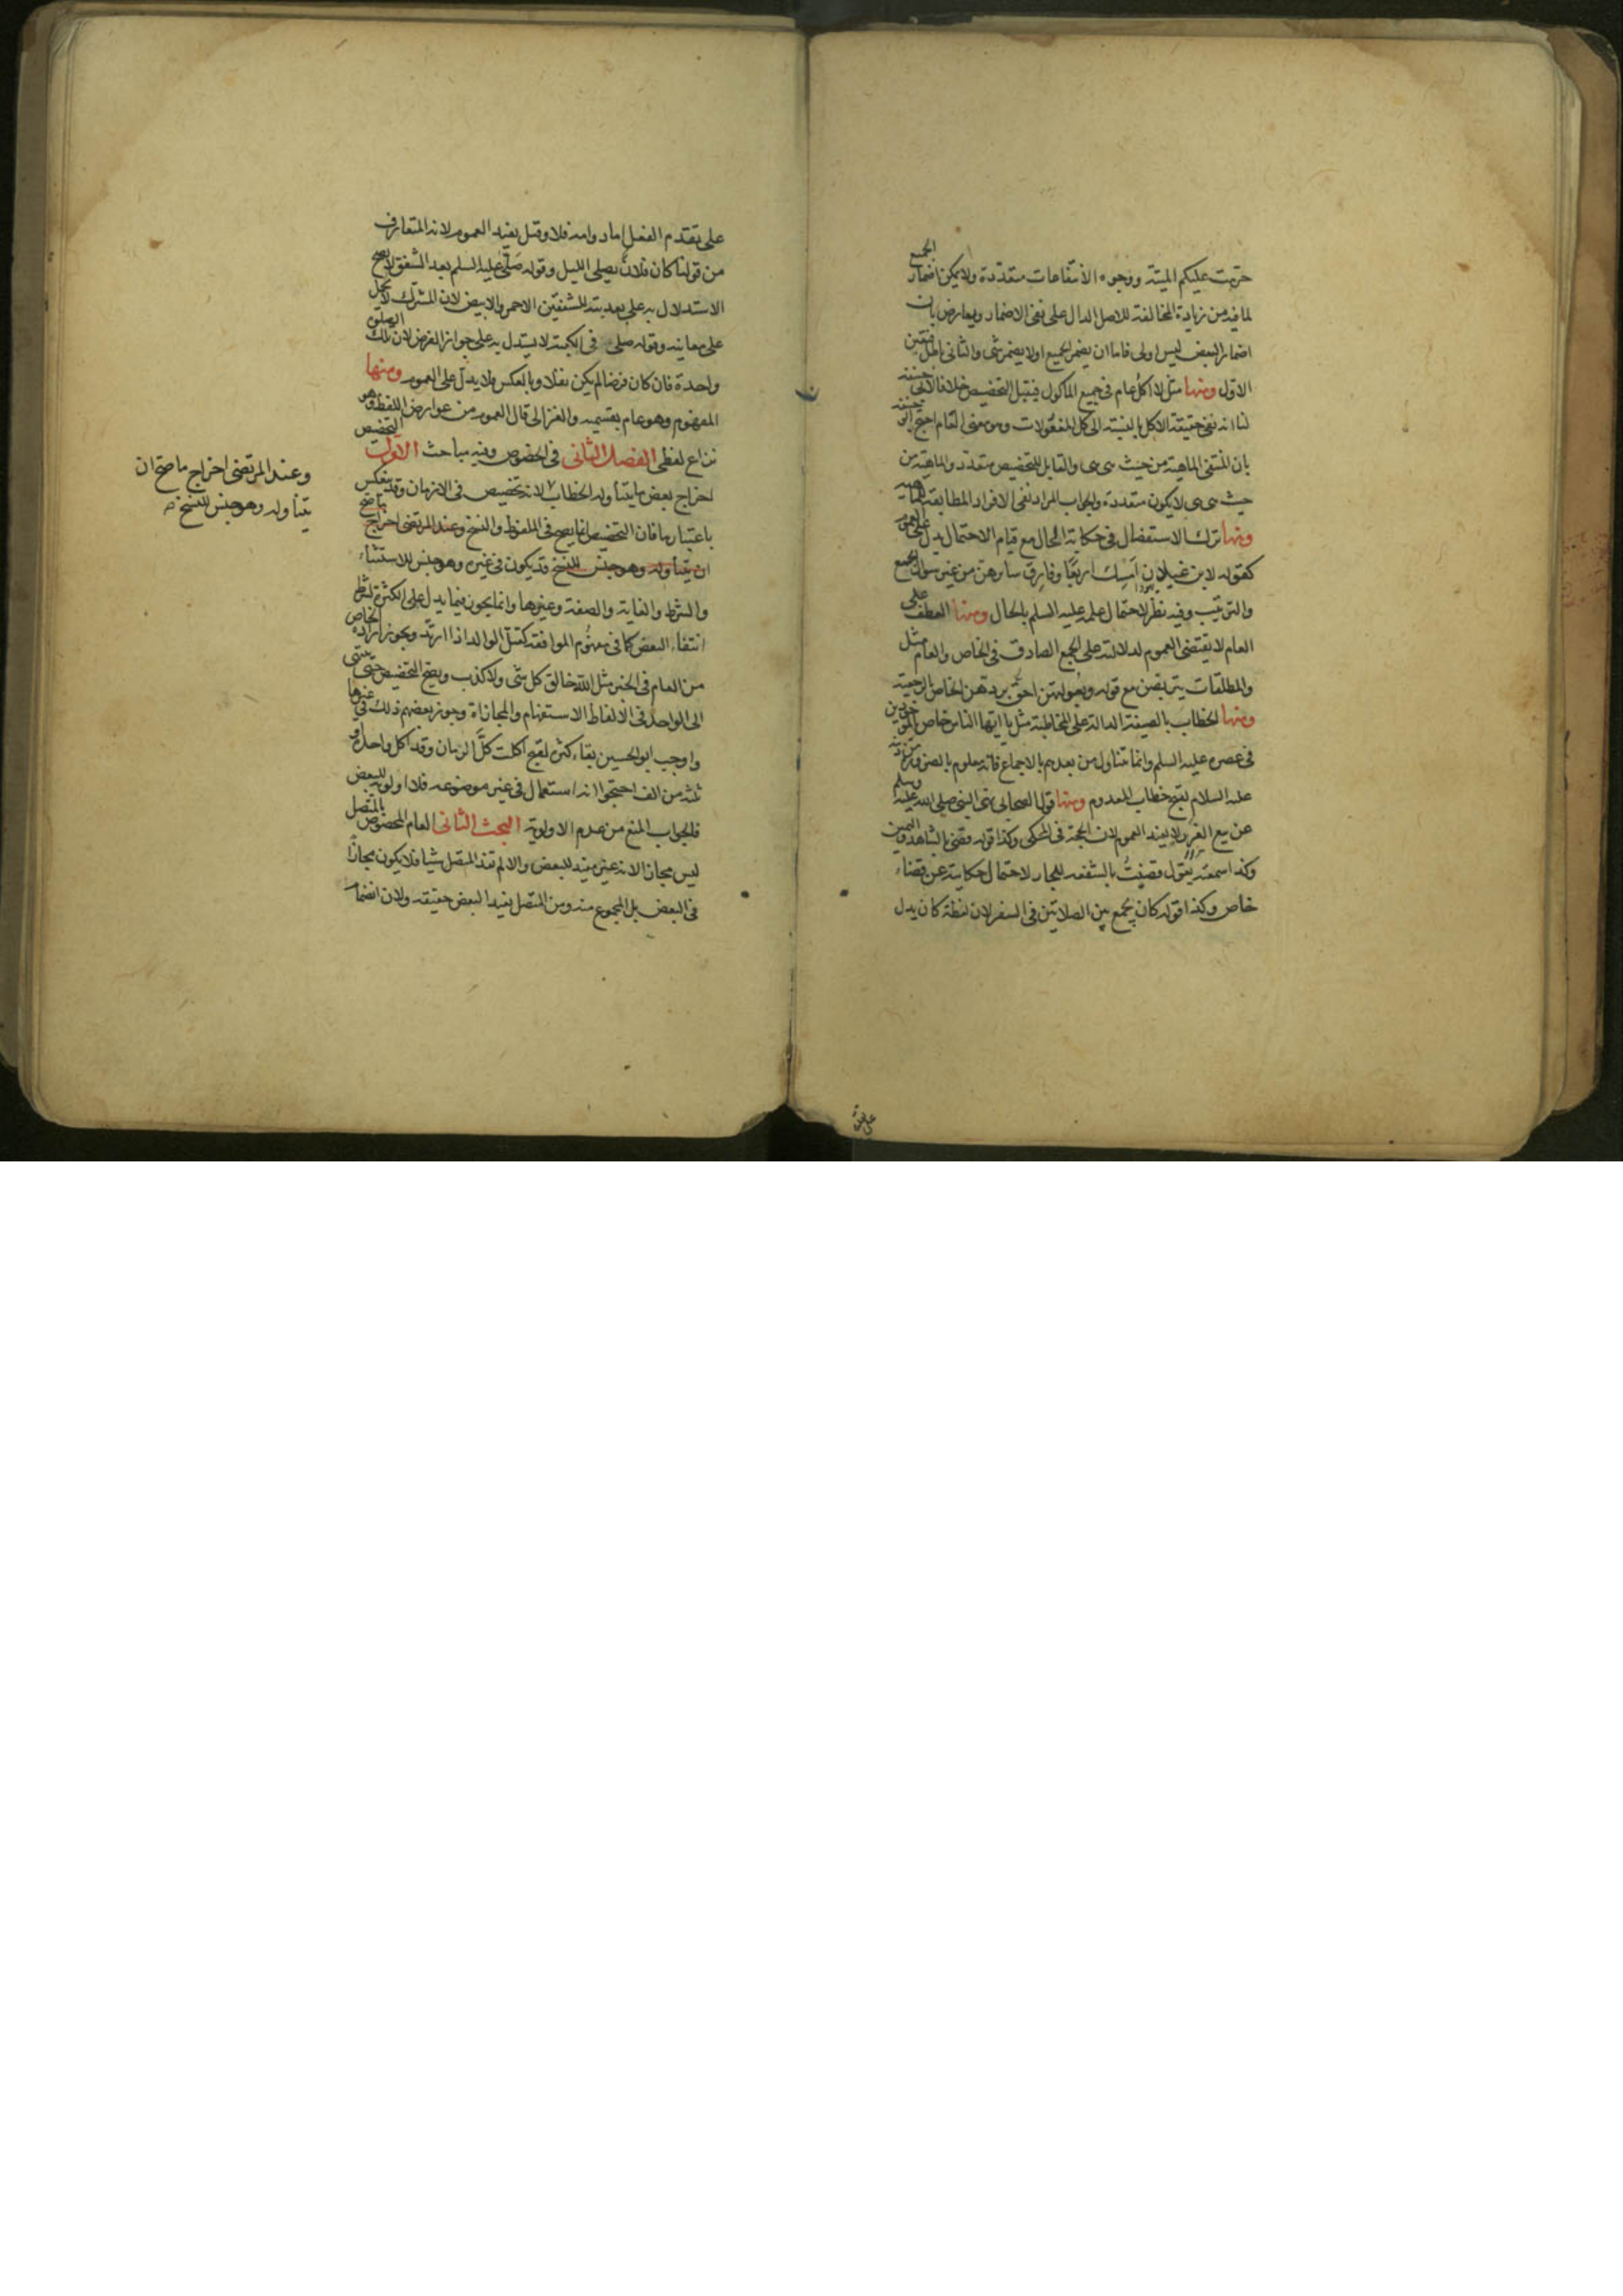 حرمت عليكم الميتة ووجوه الانتفاعات متعددة ولا يمكن اضمار الجميع
لما فيه من زيادة المخالفة للاصل الدال على نفى الاضمار ويعارض بان
اضمار البعض ليس اولى فاما ان يضمر الجميع او لا يضمر شى والثانى باطل فتعين
الاول ومنها مثل لا اكل عام فى جميع الماكول فيقبل التخصيص خلافا لابى حنيفة
لنا انه نفى حقيقة الاكل بالنسبة الى كل المفعولات وهو معنى العام احتج ابو حنيفة
بان المنتفى الماهية من حيث هى هى والقابل للتخصيص متعدد والماهية من
حيث هى هى لا يكون متعددة والجواب المراد نفى الافراد المطابقة للماهية
ومنها ترك الاستفصال فى حكاية الحال مع قيام الاحتمال يدل على العموم
كقوله لابن غيلان امسك اربعا وفارق سايرهن من غير سوال الجمع
والترتيب وفيه نظر لاحتمال علمه عليه السلم بالحال ومنها العطف على
العام لا يقتضى العموم لدلالته على الجمع الصادق فى الخاص والعام مثل
والمطلقات يتربصن مع قوله وبعولتهن احق بردهن الخاص بالرجعية
ومنها الخطاب بالصيغة الدالة على المخاطبة مثل يا ايها الناس خاص بالموجودين
فى عصره عليه السلم وانما يتناول من بعدهم بالاجماع فانه معلوم بالضرورة من دينه
عليه السلام لقبح خطاب المعدوم ومنها قول الصحابى نهى النبى صلى الله عليه وسلم
عن بيع الغرر لا يفيد العموم لان الحجة فى المحكى وكذا قوله قضى بالشاهد واليمين
وكذا سمعته يقول قضيت بالشفعة للجار لاحتمال حكايته عن قضاء
خاص وكذا قوله كان يجمع بين الصلاتين فى السفر لان لفظة كان يدل
على تقدم
على تقدم الفعل اما دوامه فلا وقيل يفيد العموم لانه المتعارف
من قولنا كان فلان يصلى الليل وقوله صلى عليه السلم بعد الشفق لا يصح
الاستدلال به على بعديته للشفقين الاحمر والابيض لان المشترك لا يحمل
على معانيه وقوله صلى فى الكعبة لا يستدل به على جواز الفرض لان تلك الصلوة
واحدة فان كان فرضا لم يكن نفلا وبالعكس ولا يدل على العموم ومنها
المفهوم وهو عام بقسميه والغزالى قال العموم من عوارض اللفظ وهو
نزاع لفظى الفصل الثانى فى الخصوص وفيه مباحث الاول التخصيص
اخراج بعض ما يتناوله الخطاب لانه تخصيص فى الازمان وقد ينعكس
باعتبار ما فان التخصيص انما يصح فى الملفوظ والنسخ وعند المرتضى اخراج ما صح
ان يتناوله وهو جنس للنسخ قد يكون فى غيره وهو جنس للاستثناء
والشرط والغاية والصفة وغيرها وانما يجوز فيما يدل على الكثرة بشرط
انتفاء البعض كما فى مفهوم الموافقة كقتل الوالد اذا ارتد ويجوز ارادة الخاص
من العام فى الخبر مثل الله خالق كل شى ولا كذب ويصح التخصيص حتى ينتهى
الى الواحد فى الالفاظ الاستفهام والمجازاة وجوز بعضهم ذلك فى غيرها
واوجب ابو الحسين بقاء كثرة لقبح اكلت كل الرمان وقد اكل واحدة او
ثلثة من الف احتجوا انه استعمال فى غير موضوعه فلا اولوية للبعض
فالجواب المنع من عدم الاولوية البحث الثانى العام المخصوص بالمتصل
ليس مجازا لانه غير مفيد للبعض والا لم يفد المتصل شيا فلا يكون مجازا
فى البعض بل المجموع منه ومن المتصل يفيد البعض حقيقة ولان انضمام
وعند المرتضى اخراج ما صح ان
يتناوله وهو جنس للنسخ صح